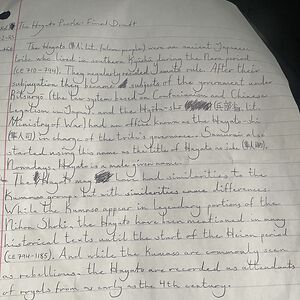 The Hayato People- Final Draft
The Hayato (隼人 lit. falcon people) were an ancient Japanese
tribe who lived in southern Kyushu during the Nara period
(CE 710-794). They regularly resisted Yamato rule. After their
subjugation they became subjects of the government under
Ritsuryo (the law system based on Confucianism and Chinese
Legalism in Japan) and the Hyobu-sho (兵部省 lit.
Ministry of War) had an office known as the Hayato-shi
(隼人司) in charge of the tribe's governance. Samurai also
started using this name as the title of Hayato as
Nowadays, Hayato is a male given name.
The Hayato may have had similarities to the
Kumaso group, but with similarities come differences.
While the Kumaso appear in legendary portions of the
Nihon Shoki, the Hayato have been mentioned in many
historical texts until the start of the Heian period
(CE 794-1185). And while the Kumaso are commonly seen
as rebellious, the Hayato are recorded as attendants
of royals from as early as the 4th century.